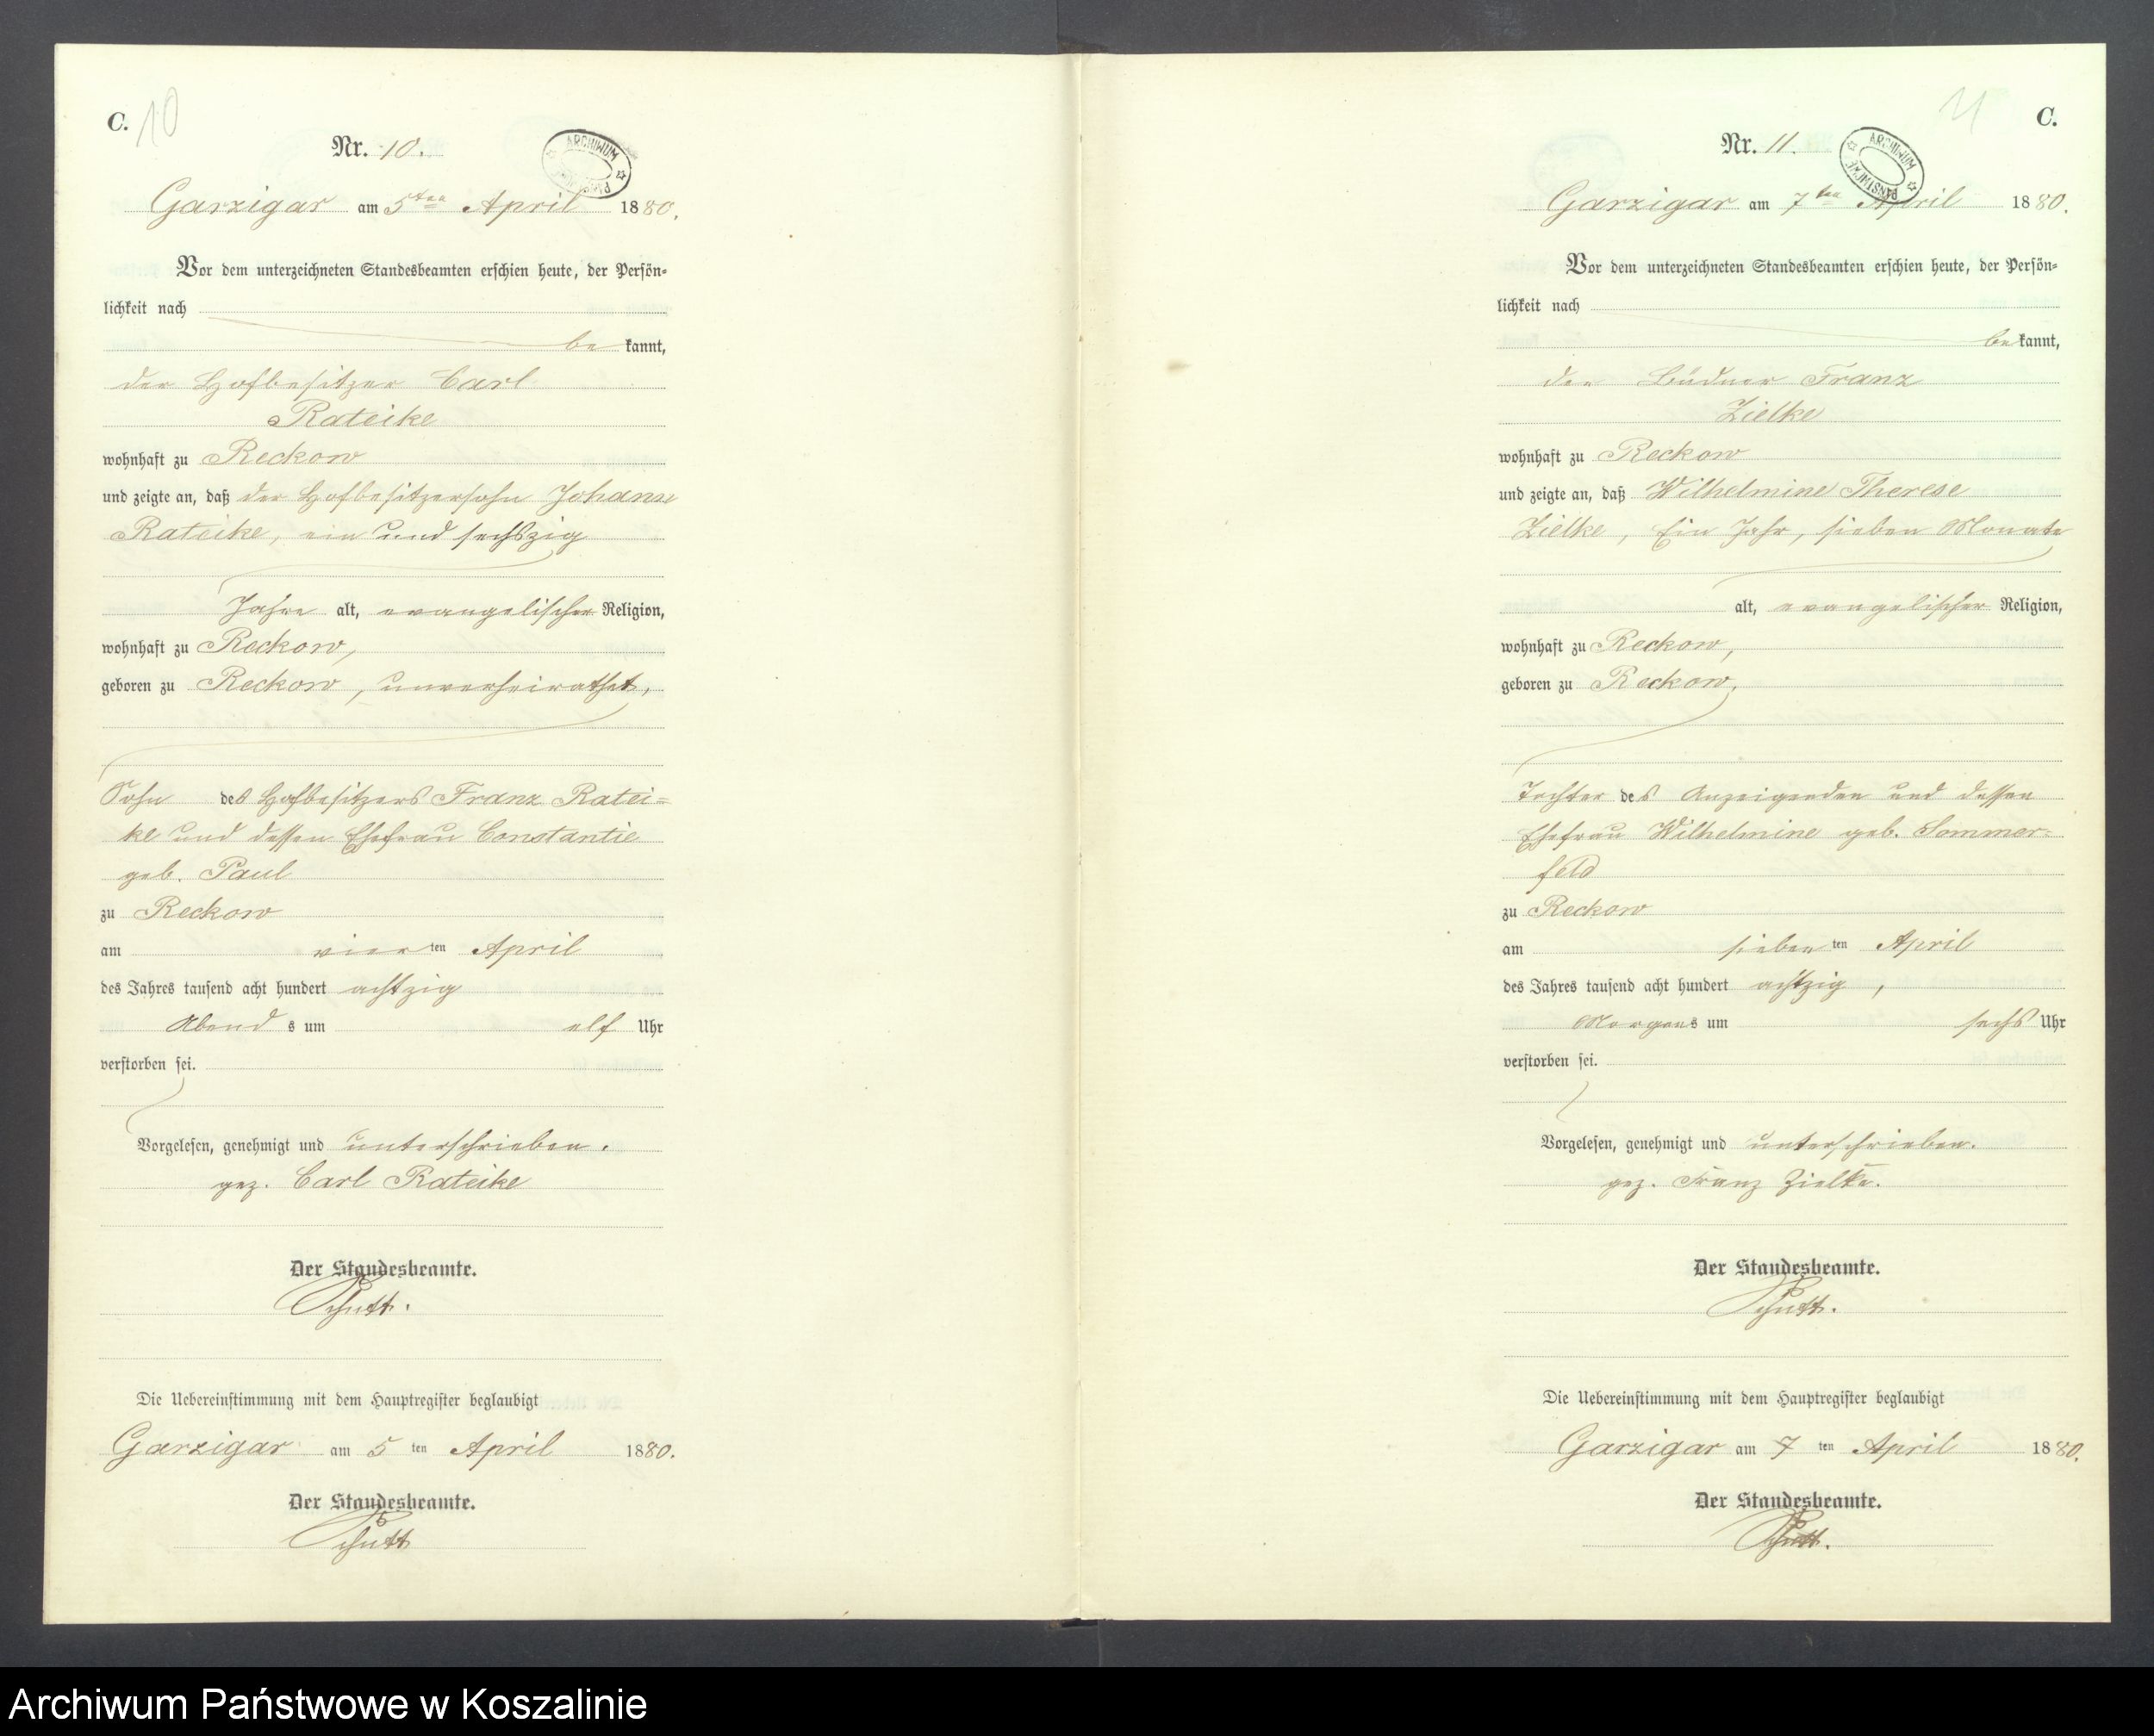 C. 10
Nr. 10.
ARCHIWUM PAŃSTWOWE
Garzigar am 5ten April 1880.
Vor dem unterzeichneten Standesbeamten erschien heute, der Persön-
lichkeit nach
be kannt,
der Hofbesitzer Carl
Rateike
wohnhaft zu Reckow
und zeigte an, daß der Hofbesitzersohn Johann
Rateike, ein und sechszig
Jahre alt, evangelischer Religion,
wohnhaft zu Reckow,
geboren zu Reckow, unverheirathet,
Sohn des Hofbesitzers Franz Ratei-
ke und dessen Ehefrau Constantie
geb. Paul
zu Reckow
am vier ten April
des Jahres tausend acht hundert achtzig
Abend s um elf Uhr
verstorben sei.
Vorgelesen, genehmigt und unterschrieben.
gez. Carl Rateike
Der Standesbeamte.
Schutt.
Die Uebereinstimmung mit dem Hauptregister beglaubigt
Garzigar am 5 ten April 1880.
Der Standesbeamte.
Schutt
11 C.
Nr. 11.
ARCHIWUM PAŃSTWOWE
Garzigar am 7ten April 1880.
Vor dem unterzeichneten Standesbeamten erschien heute, der Persön-
lichkeit nach
be kannt,
der Büdner Franz
Zielke
wohnhaft zu Reckow
und zeigte an, daß Wilhelmine Therese
Zielke, Ein Jahr, sieben Monate
alt, evangelischer Religion,
wohnhaft zu Reckow,
geboren zu Reckow,
Tochter des Anzeigenden und dessen
Ehefrau Wilhelmine geb. Sommer-
feld
zu Reckow
am sieben ten April
des Jahres tausend acht hundert achtzig,
Morgens um sechs Uhr
verstorben sei.
Vorgelesen, genehmigt und unterschrieben.
gez. Franz Zielke.
Der Standesbeamte.
Schutt.
Die Uebereinstimmung mit dem Hauptregister beglaubigt
Garzigar am 7 ten April 1880.
Der Standesbeamte.
Schutt.
Archiwum Państwowe w Koszalinie